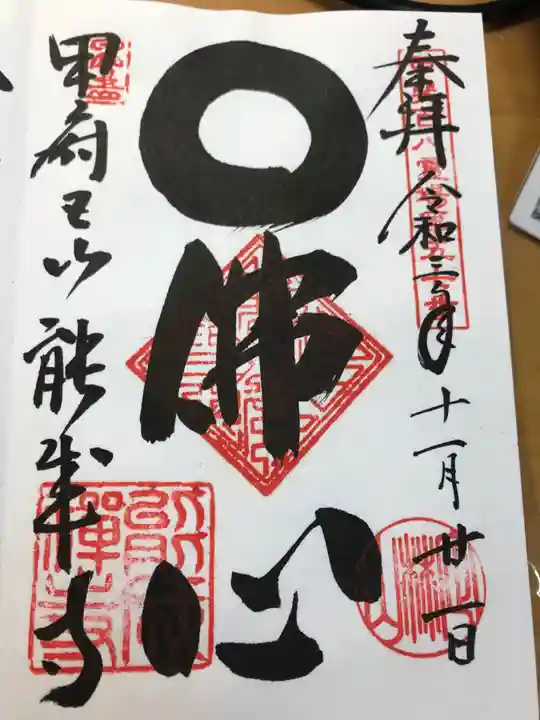 奉拝 令和三年 十一月 廿一日
佛心
甲府五山 能成寺